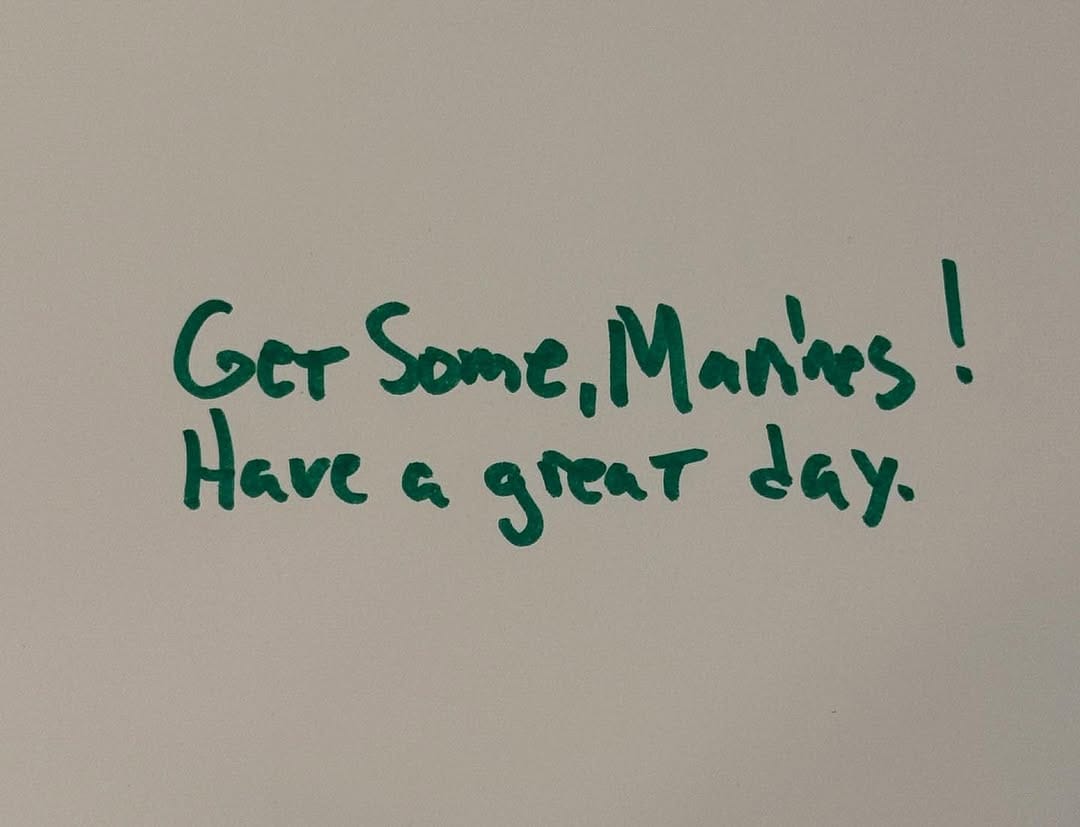 Get Some, Marines!
Have a great day.